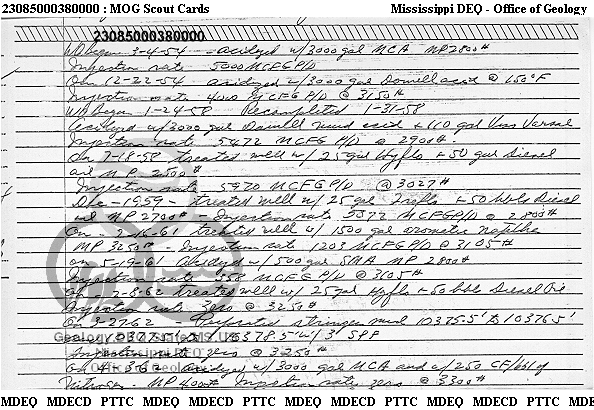 23085000380000 : MOG Scout Cards Mississippi DEQ - Office of Geology
23085000380000
WO Began 3-4-54 - acidized w/3000 gal MCA MP 2800#
Injection rate 5000 MCFGP/D
On 12-22-54 acidized w/3000 gal Dowell acid @ 150°F
Injection rate 4000 MCFGP/D @ 3150#
WO Began 1-24-58 Recompleted 1-31-58
Acidized w/3000 gal Dowell mud acid + 110 gal
Injection rate 5472 MCFG P/D @ 2900#.
On 7-18-58 treated well w/ 25 gal Hyflo + 50 gal Diesel
oil MP 2500#
Injection rate 5970 MCFGP/D @ 3027#
Dec - 1959 - treated well w/ 25 gal + 50 bbls Diesel
oil MP 2700# - Injection rate 5372 MCFGP/D @ 2800#
On 2-16-61 treated well w/ 1500 gal aromatic Naptha
MP 3250# - Injection rate 1203 MCFGP/D @ 3105#
On 5-19-61 Acidized w/500 gal SMA MP 2800#
Injection rate 558 MCFGP/D @ 3105#
treated well w/ 25 gal Hyflo + 50 bbl Diesel Oil
Injection rate zero @ 3250#
On 3-27-62 - Perforated stringer 10375.5' to 10376.5'
10378.5' w/ 3' SPF
Injection rate zero @ 3250#
On 4-3-62 acidized w/3000 gal MCA and w/ 250 CF/bbl of
Nitrogen - MP 4000# Injection rate zero @ 3300#
Geology
Mississippi DEQ
Office of Geology
MDEQ MDECD PTTC MDEQ MDECD PTTC MDEQ MDECD PTTC MDEQ MDECD PTTC MDE